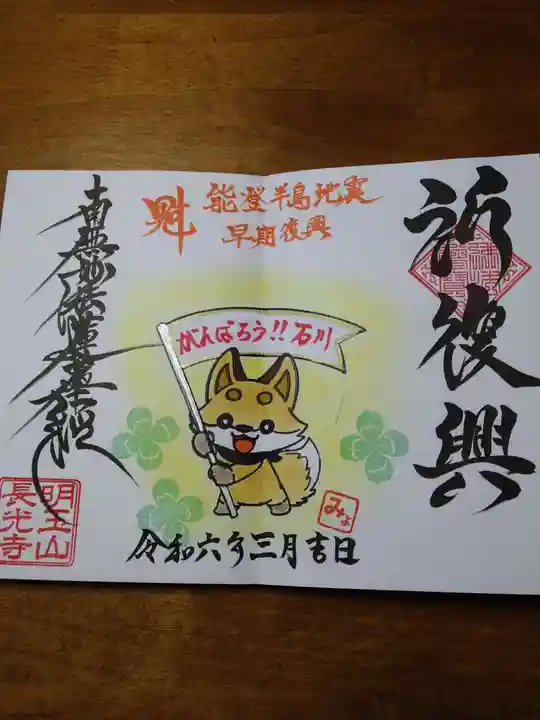 祈復興
魁
能登半島地震
早期復興
がんばろう!!石川
みよ
令和六年三月吉日
南無妙法蓮華経
明王山
長光寺